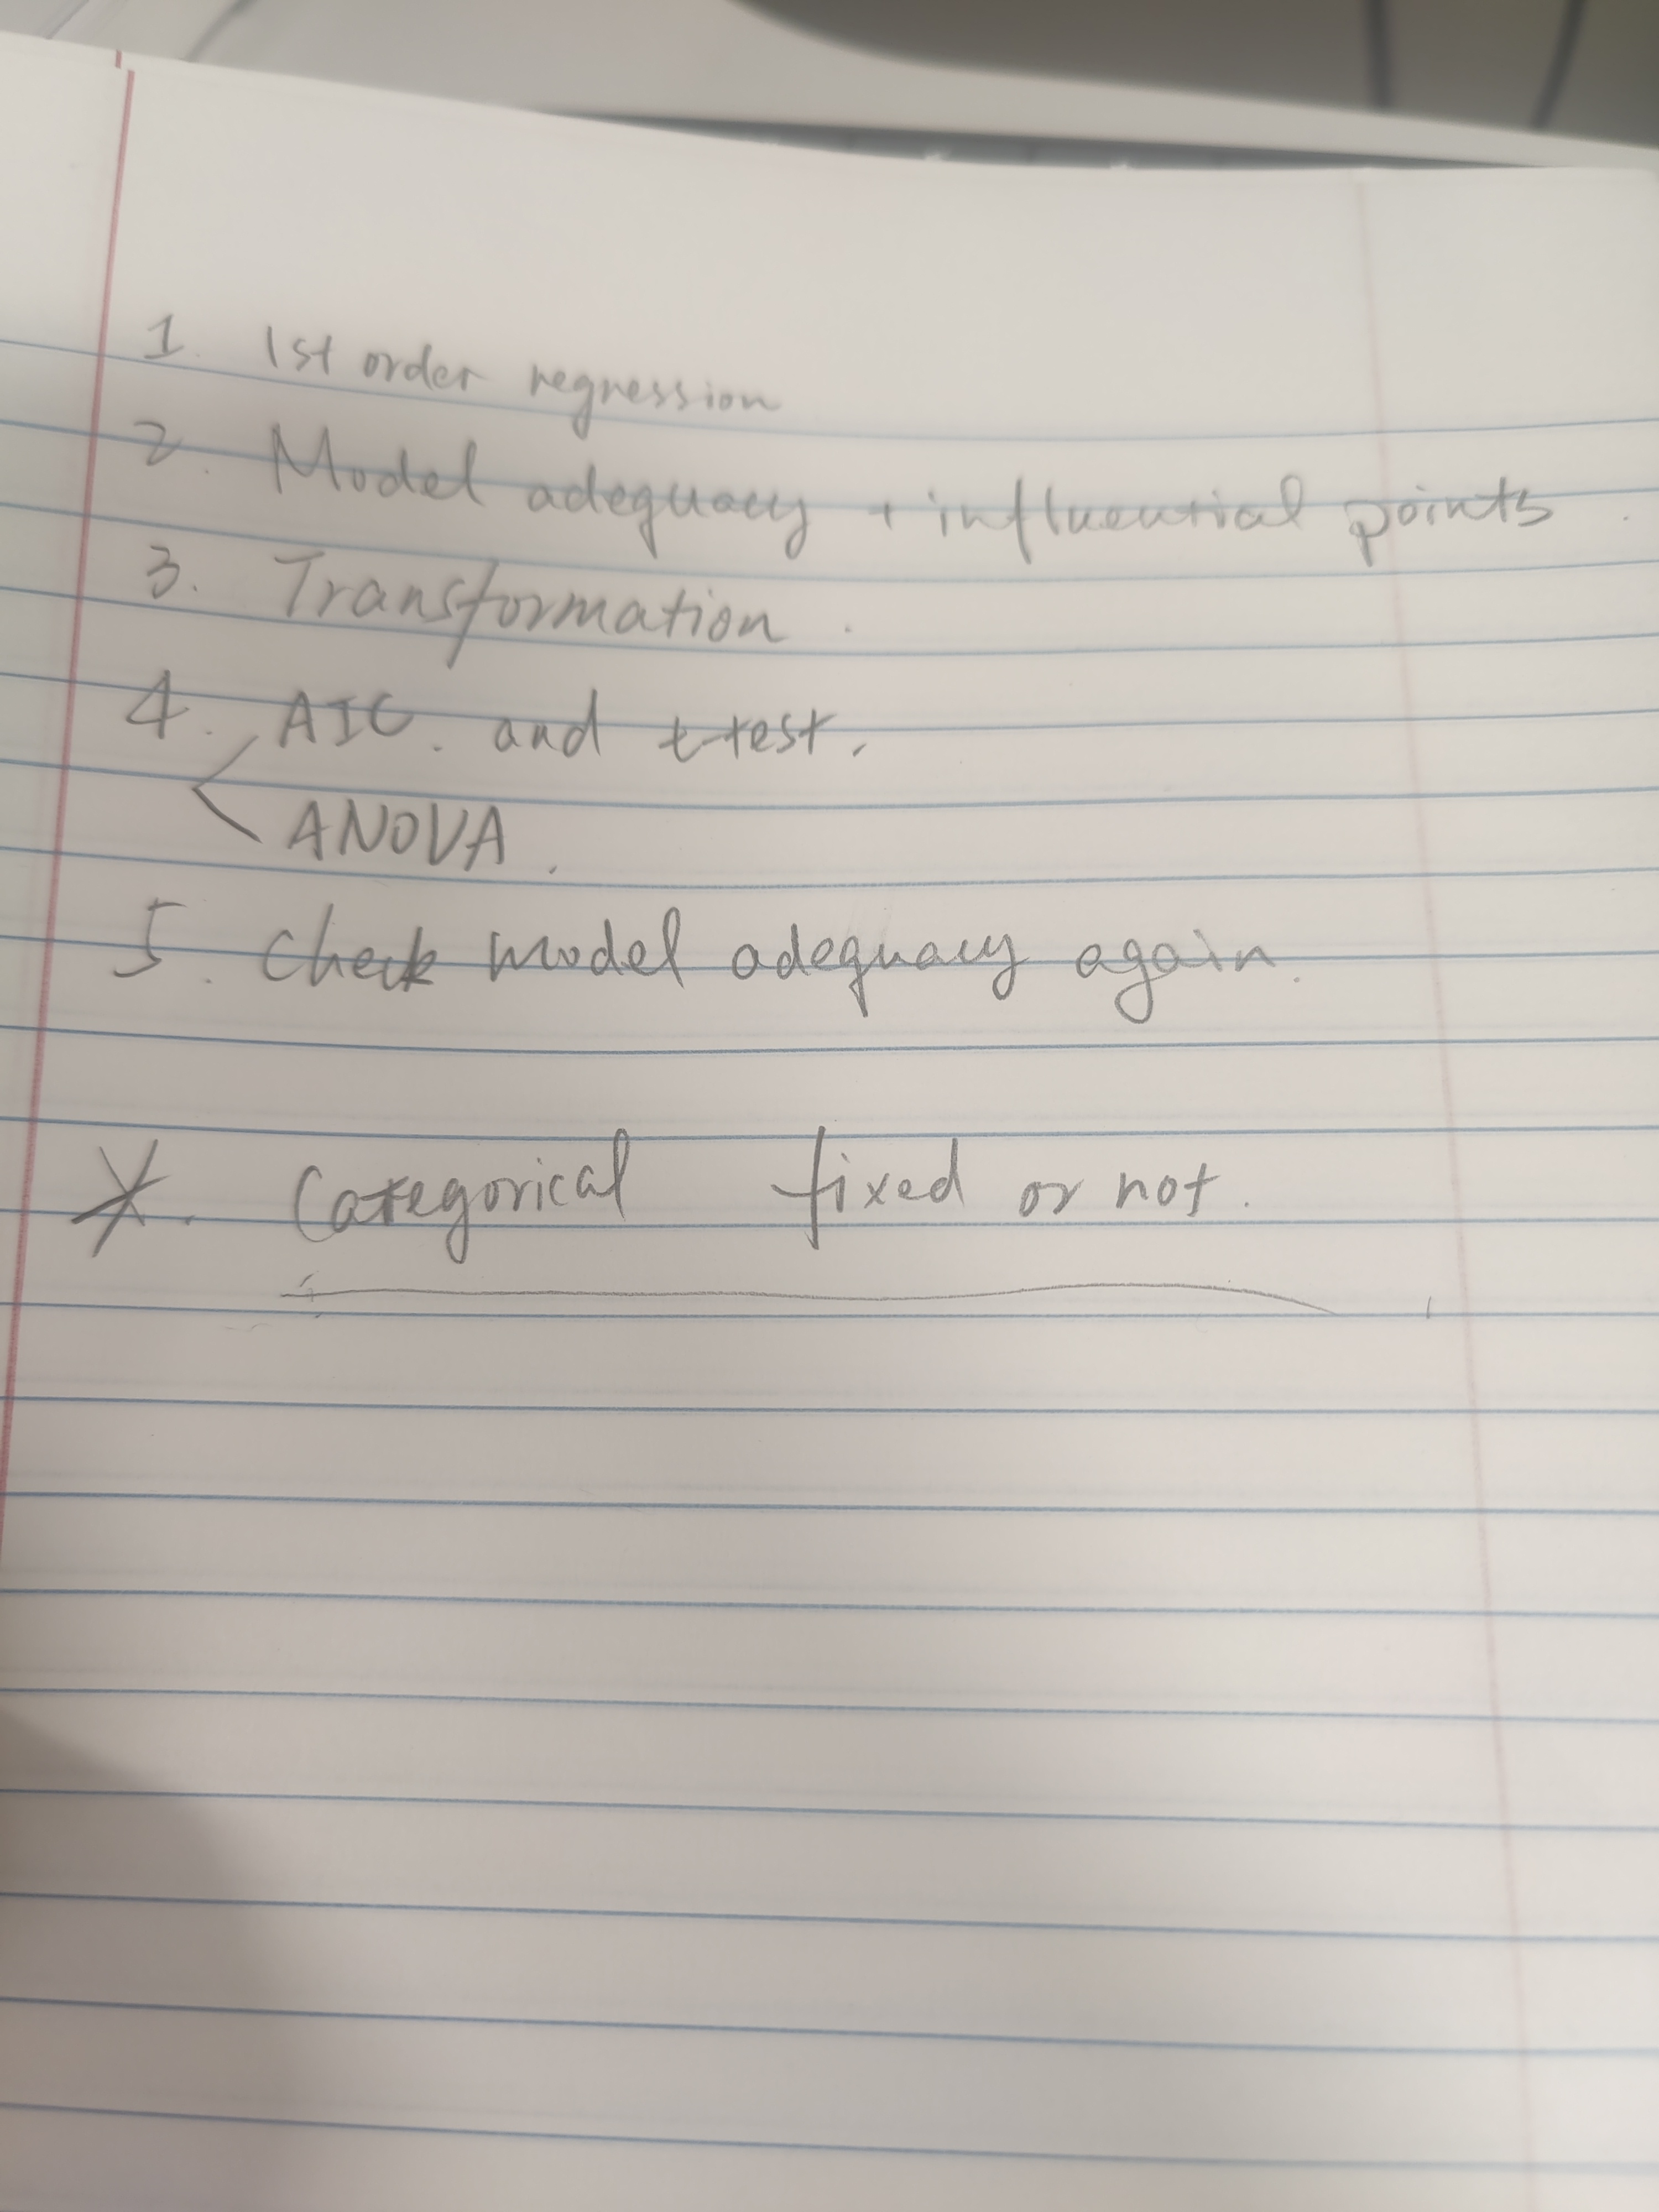 1. 1st order regression
2. Model adequacy + influential points.
3. Transformation.
4. AIC. and t-test.
ANOVA.
5. Check model adequacy again.
*. Categorical fixed or not.